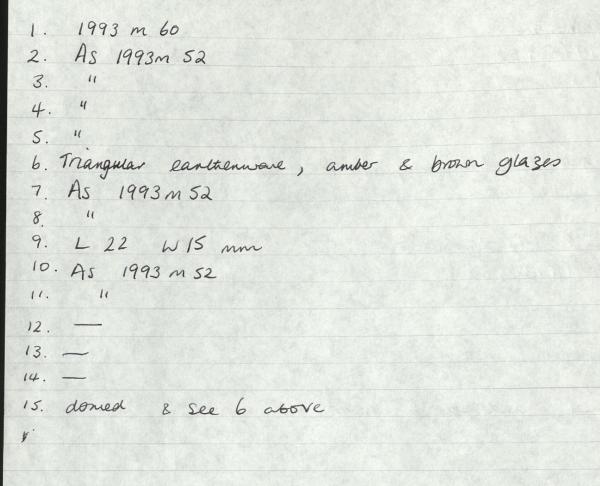 1. 1993 m 60
2. As 1993 m 52
3. "
4. "
5. "
6. Triangular earthenware, amber & brown glazes
7. As 1993 m 52
8. "
9. L 22 W 15 mm
10. As 1993 m 52
11. "
12. —
13. —
14. —
15. domed & see 6 above